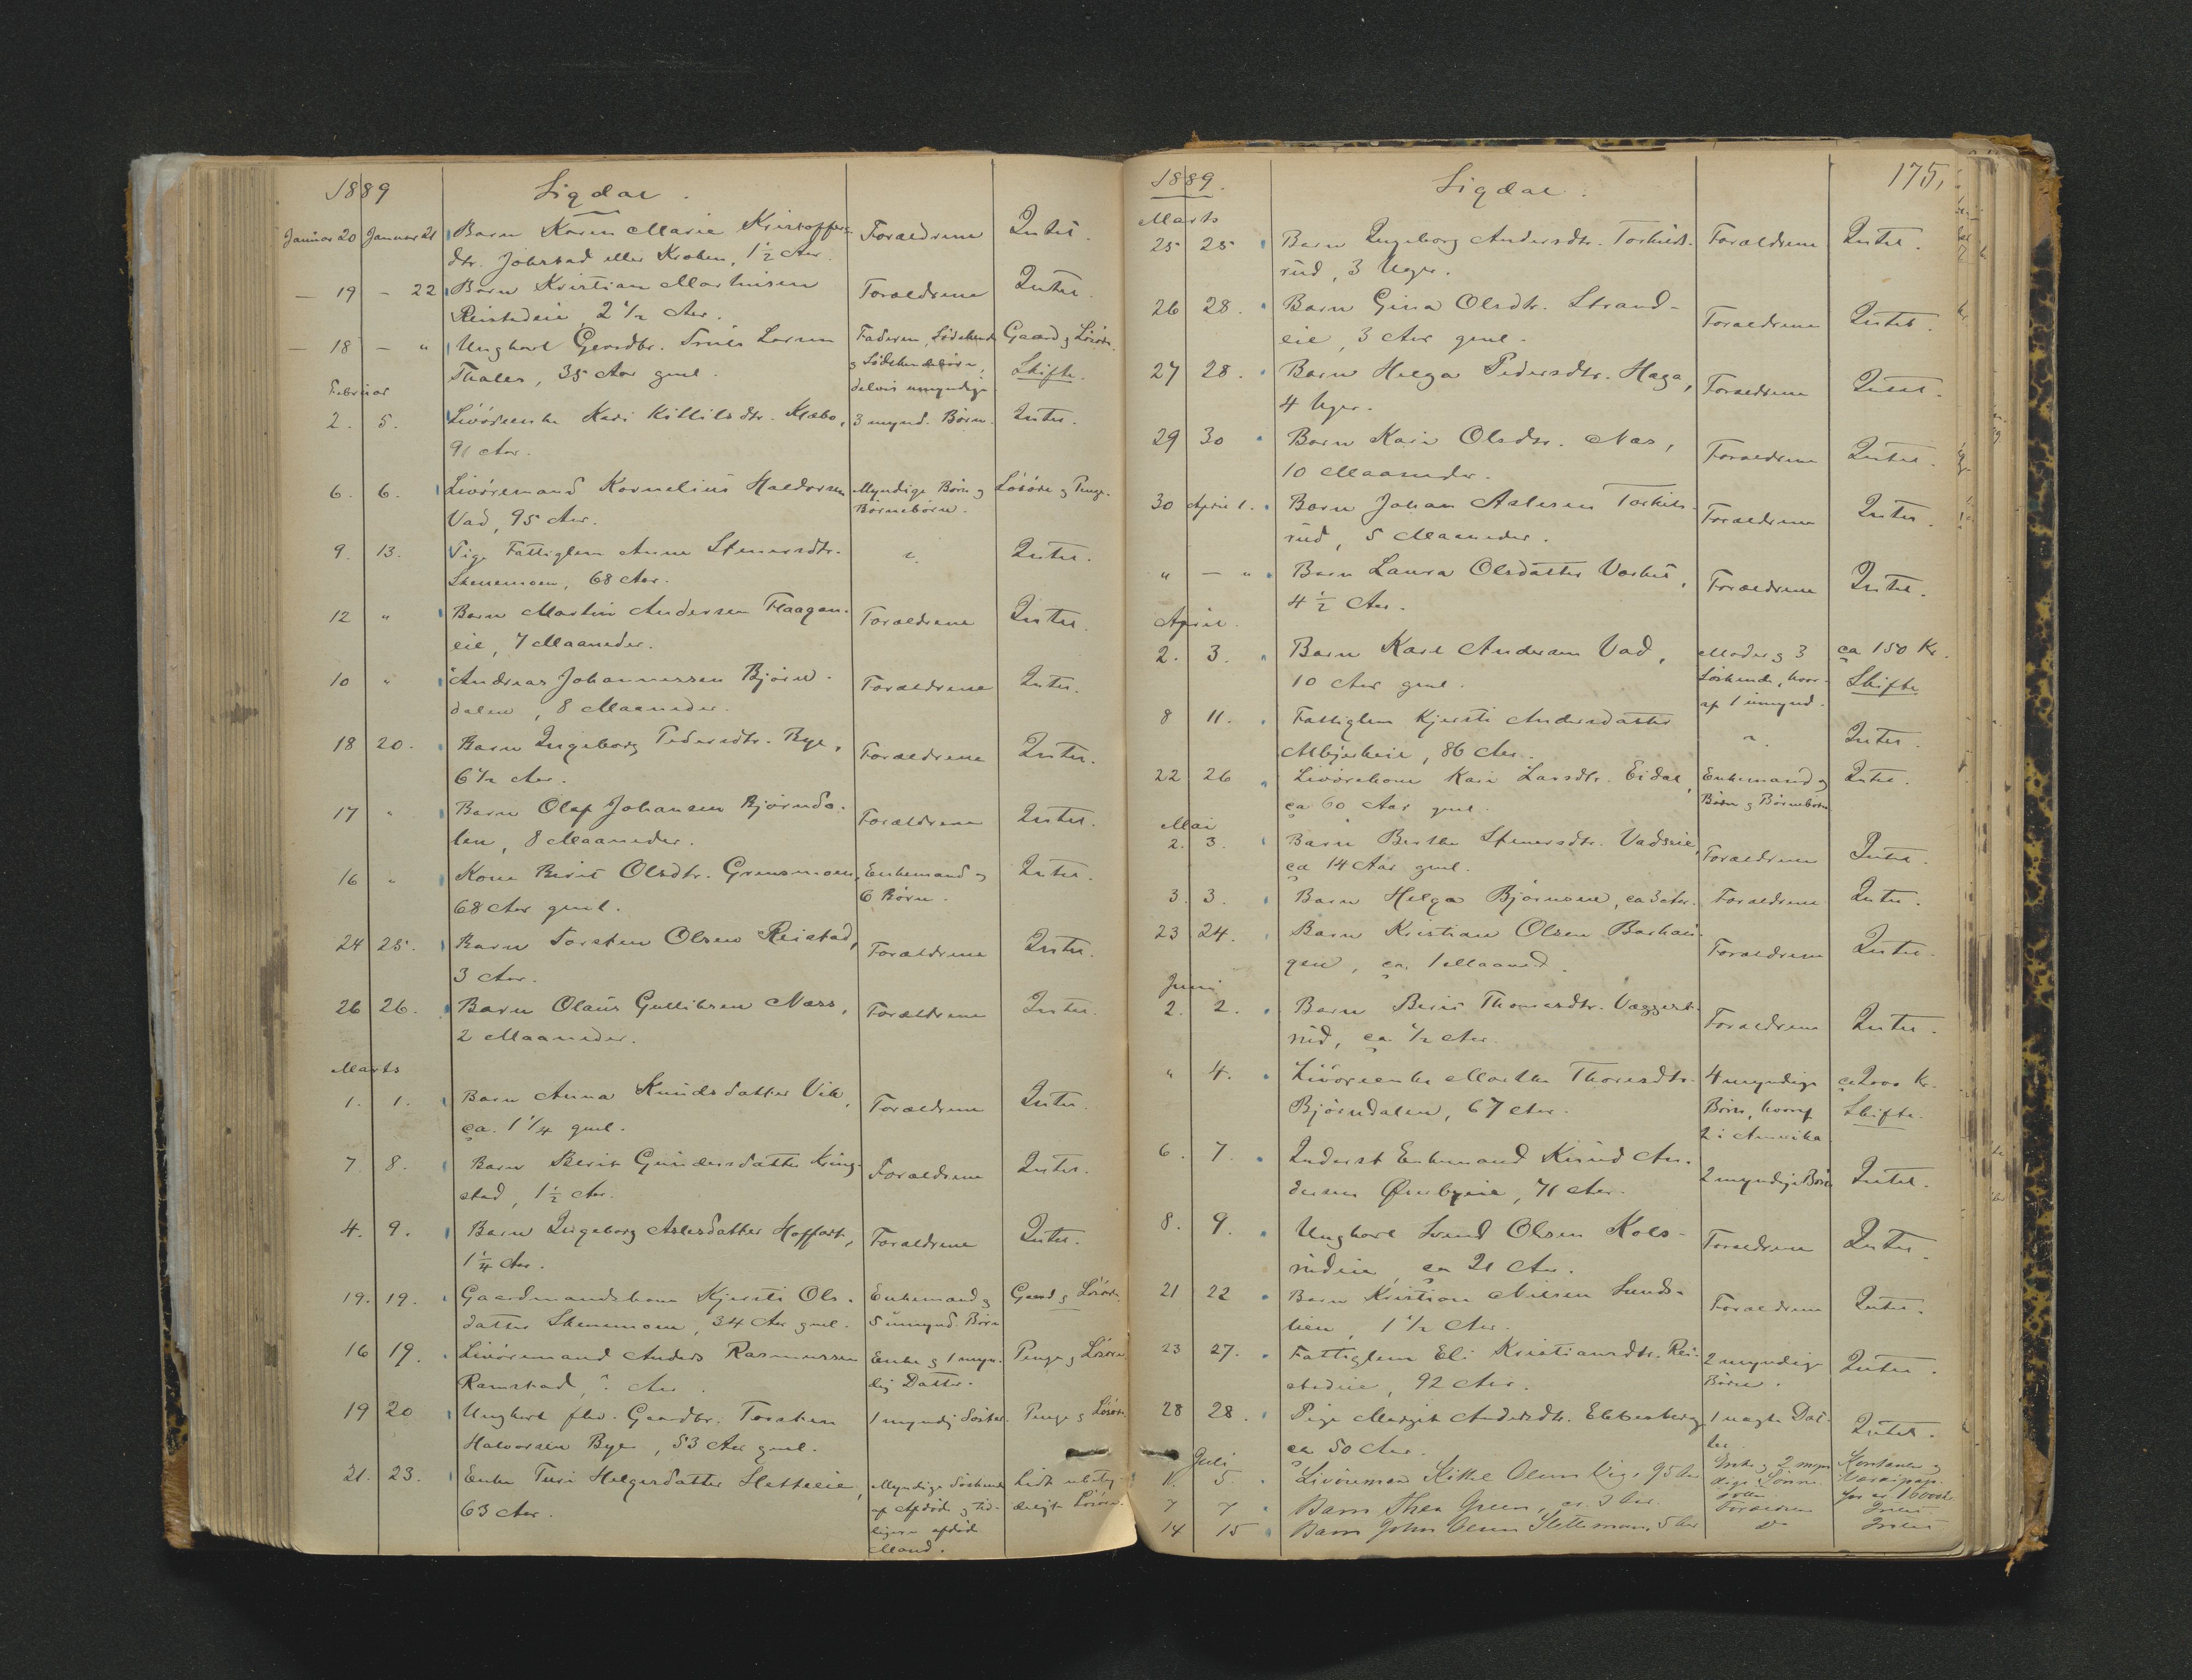 1889
Sigdal.
Januar 20 Januar 21 Barn Karen Marie Kristoffers- Forældrene Intet.
dtr. Jokstad eller Kroken, 1½ Aar.
— 19 — 22 Barn Kristian Martinsen Forældrene Intet.
Reistadeie, 2½ Aar.
— 18 — " Ungkarl Gaardbr. Larsen Faderen, Sødskende Gaard og Løsøre.
Thales, 35 Aar gml. og Sødskendebørn, Skifte.
delvis umyndige
Februar
2. 5. Livørenke Kari Killilsdtr. Kkæbo, 3 mynd. Børn. Intet.
91 Aar.
6. 6. Livøremand Kornelius Haldorsen Myndige Børn og Løsøre og Penge.
Vad, 95 Aar. Børnebørn.
9. 13. Pige Fattiglem Anne Stenersdtr. Intet.
Skenemoen, 68 Aar.
12 " Barn Martin Andersen Flaagan- Forældrene Intet.
eie, 7 Maaneder.
10 " Andreas Johannessen Bjørn- Forældrene Intet.
dalen, 8 Maaneder.
18 20. Barn Ingeborg Pedersdtr. Bye, Forældrene Intet.
6½ Aar.
17 " Barn Olaf Johansen Bjørnda- Forældrene Intet.
len, 8 Maaneder.
16 " Kone Berit Olsdtr. Grensmoen, Enkemand og Intet.
68 Aar gml. 6 Børn.
24 25. Barn Torsten Olsen Reistad, Forældrene Intet.
3 Aar.
26 26. Barn Olaus Gulliksen Næss, Forældrene Intet.
2 Maaneder.
Marts
1. 1. Barn Anna Knudsdatter Vik, Forældrene Intet.
ca. 1¼ gml.
7. 8. Barn Berit Gundersdatter Kring- Forældrene Intet.
stad, 1½ Aar.
4. 9. Barn Ingeborg Aslesdatter Hoffart, Forældrene Intet.
1¼ Aar.
19. 19. Gaardmandskone Kjersti Ols- Enkemand og Gaard og Løsøre.
datter Skenemoen, 34 Aar gml. 5 umynd. Børn
16 19. Livøremand Anders Rasmussen Enke og 1 myn- Penge og Løsøre.
Ramstad, ? Aar. dig Datter.
19 20 Ungkarl fhv. Gaardbr. Torsten 1 myndig Søster. Penge og Løsøre.
Halvorsen Bye, 53 Aar gml.
21. 23. Enke Turi Helgesdatter Sletteeie, Myndige Søskende Lidt ubety-
63 Aar. af Afdøde og tid- deligt Løsøre.
ligere afdøde
Mand.
1889.
Sigdal.
175,
Marts
25 25 Barn Ingeborg Andersdtr. Torkils- Forældrene Intet.
rud, 3 Uger.
26 28. Barn Gina Olsdtr. Strand- Forældrene Intet.
eie, 3 Aar gml.
27 28. Barn Helga Pedersdtr. Haga, Forældrene Intet.
4 Uger.
29 30 Barn Kari Olsdtr. Næs, Forældrene Intet.
10 Maaneder.
30 April 1. Barn Johan Aslesen Torkils- Forældrene Intet.
rud, 5 Maaneder.
" — " Barn Laura Olsdatter Varhus, Forældrene Intet.
4½ Aar.
April.
2. 3. Barn Karl Andersen Vad, Moder og 3 ca 150 Kr.
10 Aar gml. Søskende, hvor- Skifte
af 1 umynd.
8 11. Fattiglem Kjersti Andersdatter Intet.
86 Aar.
22 26 Livørekone Kari Larsdtr. Eidal, Enkemand og Intet.
ca 60 Aar gml. Børn og Børnebørn
Mai
2. 3. Barn Berthe Stenersdtr. Vadseie, Forældrene Intet.
ca 14 Aar gml.
3. 3. Barn Helga Bjørnsen, ca 3 Aar. Forældrene Intet.
23 24. Barn Kristian Olsen Bakhau- Forældrene Intet.
gen, ca. 1 Maaned.
Juni
2. 2. Barn Berit Thomesdtr. Væggers- Forældrene Intet.
rud, ca ½ Aar.
" 4. Livørenke Marthe Thoresdtr. 4 myndige ca 2000 Kr.
Bjørndalen, 67 Aar. Børn, hvoraf Skifte.
2 i Amerika
6. 7. Inderst Enkemand Knud An- 2 myndige Børn Intet.
dersen Ørnbyeie, 71 Aar.
8. 9. Ungkarl Svend Olsen Kols- Forældrene Intet.
rudeie, ca 21 Aar.
21 22 Barn Kristian Nilsen Lunds- Forældrene Intet.
lien, 1½ Aar.
23 27. Fattiglem Eli Kristiansdtr. Rei- 2 myndige Intet.
stadeie, 92 Aar. Børn.
28 28. Pige Margit Andersdtr. Ebbesberg 1 uægte Dat- Intet.
ca 50 Aar. ter.
Juli
1. 5 Livøremand Kittil Olsen Vig, 95 Aar Enke og 2 myn- Kontanter og
dige Sønner Værdipap-
7 7 Barn Thea Green, ca. 3 Aar. Forældrene Intet
14 15 Barn John Olsen Slettemoen, 5 Aar do Intet